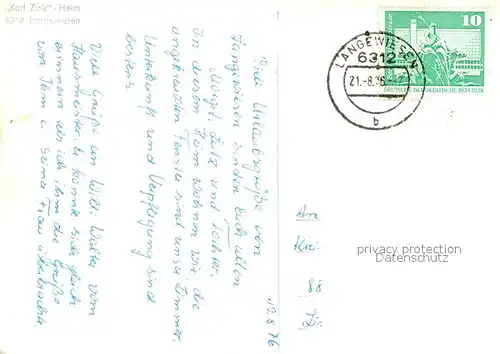 „Karl Zink“-Heim
6312 Langewiesen
12.8.76
Viele Urlaubsgrüße von
Langewiesen senden Euch allen
Margit, Lutz und Tochter.
In diesem Heim wohnen wir, die
angekreuzten Fenster sind unser Zimmer.
Unterkunft und Verpflegung sind
bestens.
Viele Grüße an Willi Walter vom
Hausmeister Er konnte sich gleich
erinnern als ich ihm die Grüße
von Ihm u. seiner Frau
LANGEWIESEN
6312
21.-8.76
b
10
DEUTSCHE DEMOKRATISCHE REPUBLIK
An
88
privacy protection
Datenschutz